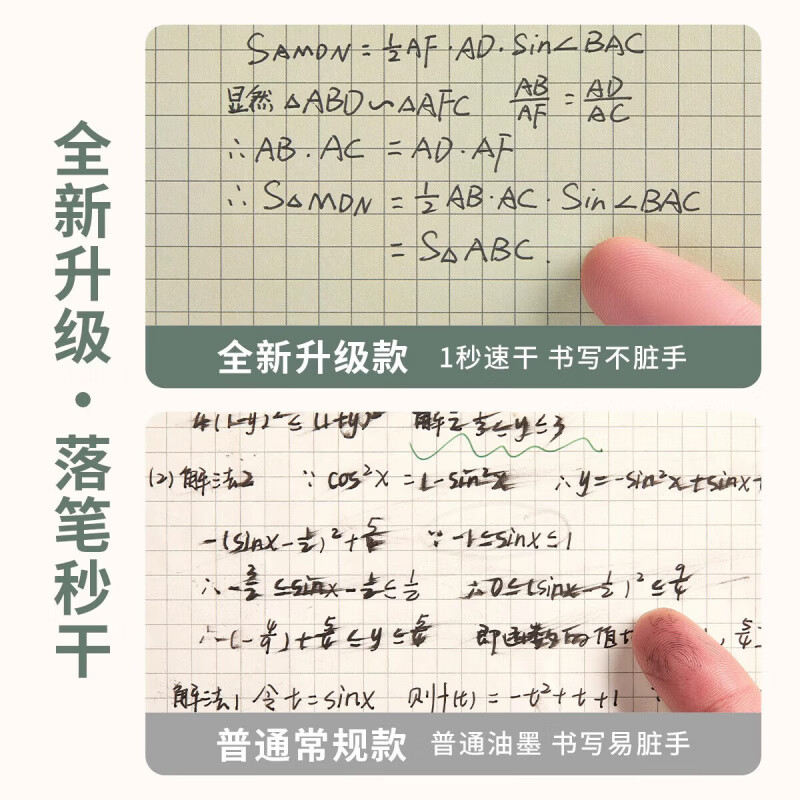 全新升级·落笔秒干
S△MDN = 1/2 AF·AD·Sin∠BAC
显然 △ABD∽△AFC AB/AF = AD/AC
∴ AB·AC = AD·AF
∴ S△MDN = 1/2 AB·AC·Sin∠BAC
= S△ABC.
全新升级款 1秒速干 书写不脏手
4(1-y)² ≤ (1+y)² 解之 ≤y≤3
(2)解法2 ∵ cos²x = 1-sin²x ∴y=-sin²x+sinx+
-(sinx-1/2)²+5/4 ∵ -1≤sinx≤1
∴ -3/2 ≤sinx-1/2≤1/2 ∴0≤(sinx-1/2)²≤9/4
≤y≤5/4 即函数的值
解法1 令t=sinx 则f(t)=-t²+t+1
普通常规款 普通油墨 书写易脏手